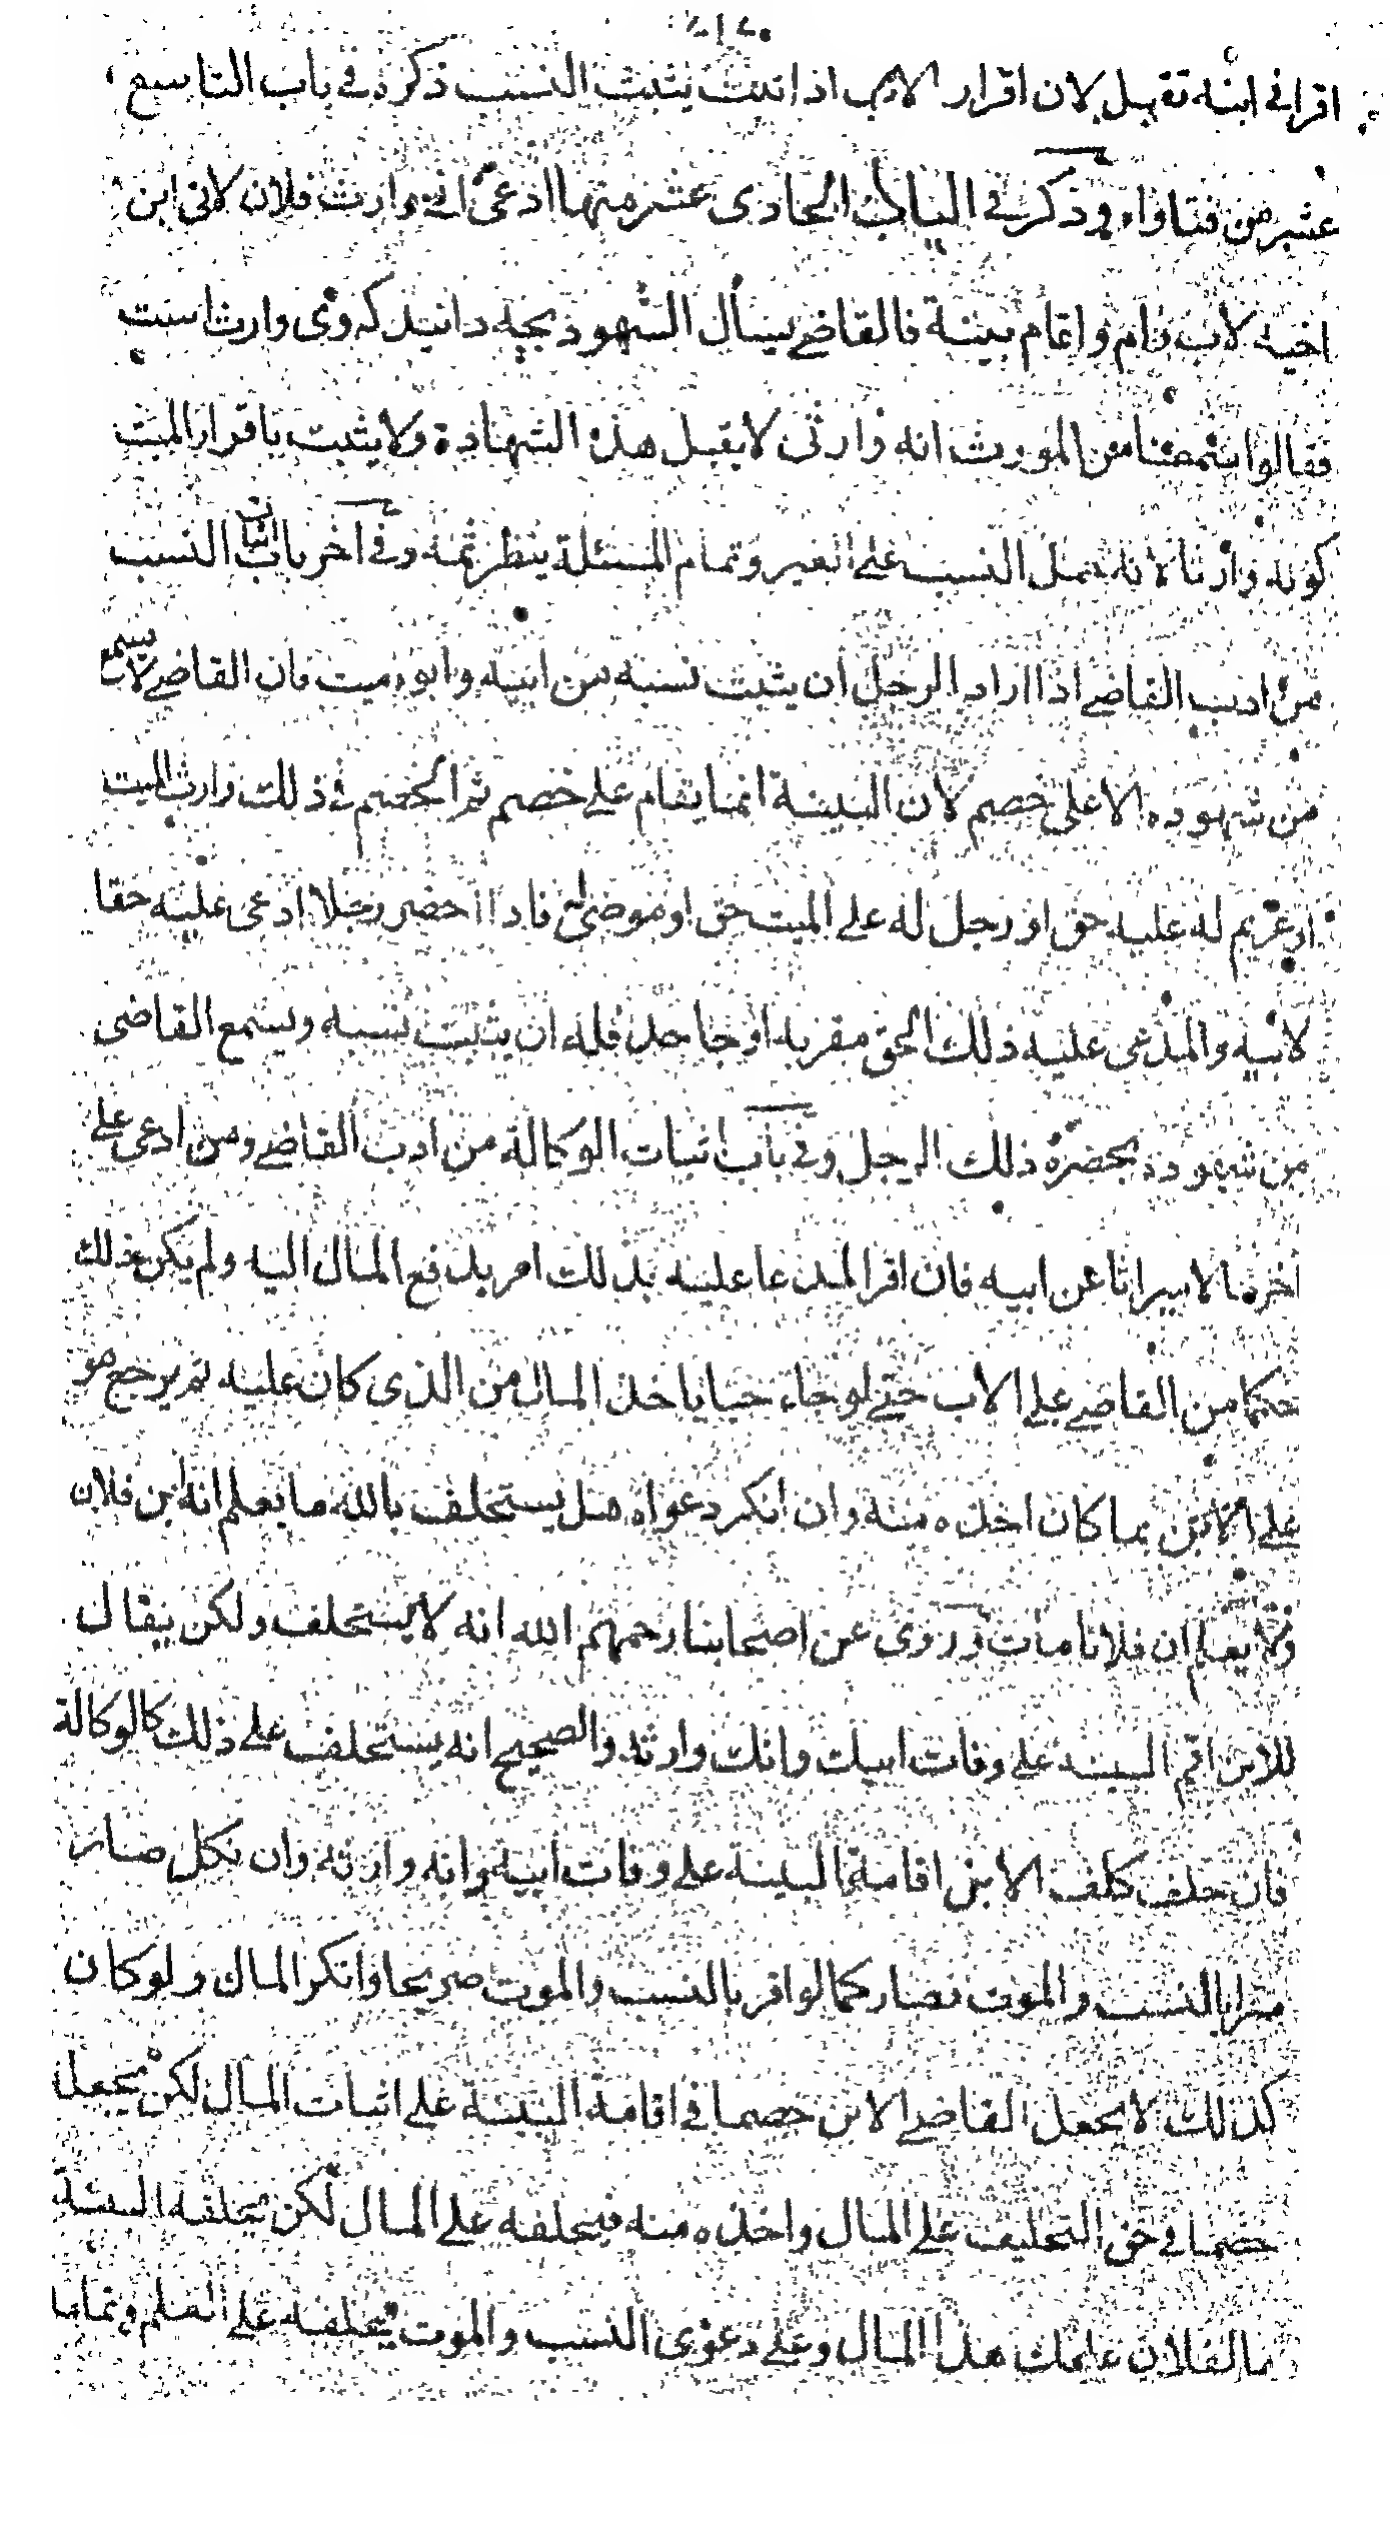 اقر انى ابنه تقبل لان اقرار الاب اذا ثبت يثبت النسب ذكره فى باب التاسع
عشر من فتاواه وذكر فى الباب الحادى عشر منها ادعى انى وارث فلان لانى ابن
اخيه لاب وام واقام بينة فالقاضى يسأل الشهود بچه دانيد كه وى وارث است
فقالوا سمعنا من المورث انه وارثى لا يقبل هذه الشهادة ولا يثبت باقرار الميت
كونه وارثا لانه تحمل النسب على الغير وتمام المسئلة ينظر ثمه وفى آخر باب اثبات النسب
من ادب القاضى اذا اراد الرجل ان يثبت نسبه من ابيه وابوه ميت فان القاضى لا يسمع
من شهوده الا على خصم لان البينة انما يقام على خصم ثم الخصم فى ذلك وارث الميت
او غريم له عليه حق او رجل له على الميت حق او موصى له فاذا احضر رجلا ادعى عليه حقا
لابيه والمدعى عليه ذلك الحق مقر به او جاحد فله ان يثبت نسبه ويسمع القاضى
من شهوده بحضرة ذلك الرجل وفى باب اثبات الوكالة من ادب القاضى ومن ادعى على
اخر مالا ميراثا عن ابيه فان اقر المدعا عليه بذلك امر بدفع المال اليه ولم يكن ذلك
حكما من القاضى على الاب حتى لو جاء حيا ياخذ المال من الذى كان عليه ثم يرجع هو
على الابن بما كان اخذه منه وان انكر دعواه هل يستحلف بالله ما يعلم انه ابن فلان
ولا يعلم ان فلانا مات وروى عن اصحابنا رحمهم الله انه لا يستحلف ولكن يقال
للابن اقم البينة على وفات ابيك وانك وارثه والصحيح انه يستحلف على ذلك كالوكالة
فان حلف كلف الابن اقامة البينة على وفات ابيه وانه وارثه وان نكل صار
مقرا بالنسب والموت فصار كما لو اقر بالنسب والموت صريحا وانكر المال ولو كان
كذلك لا يجعل القاضى الابن خصما فى اقامة البينة على اثبات المال لكن يجعل
خصما فى حق التحليف على المال واخذه منه فيحلفه على المال لكن يحلفه البتة
ما لفلان عليك هذا المال وعلى دعوى النسب والموت يحلفه على العلم وتمامها